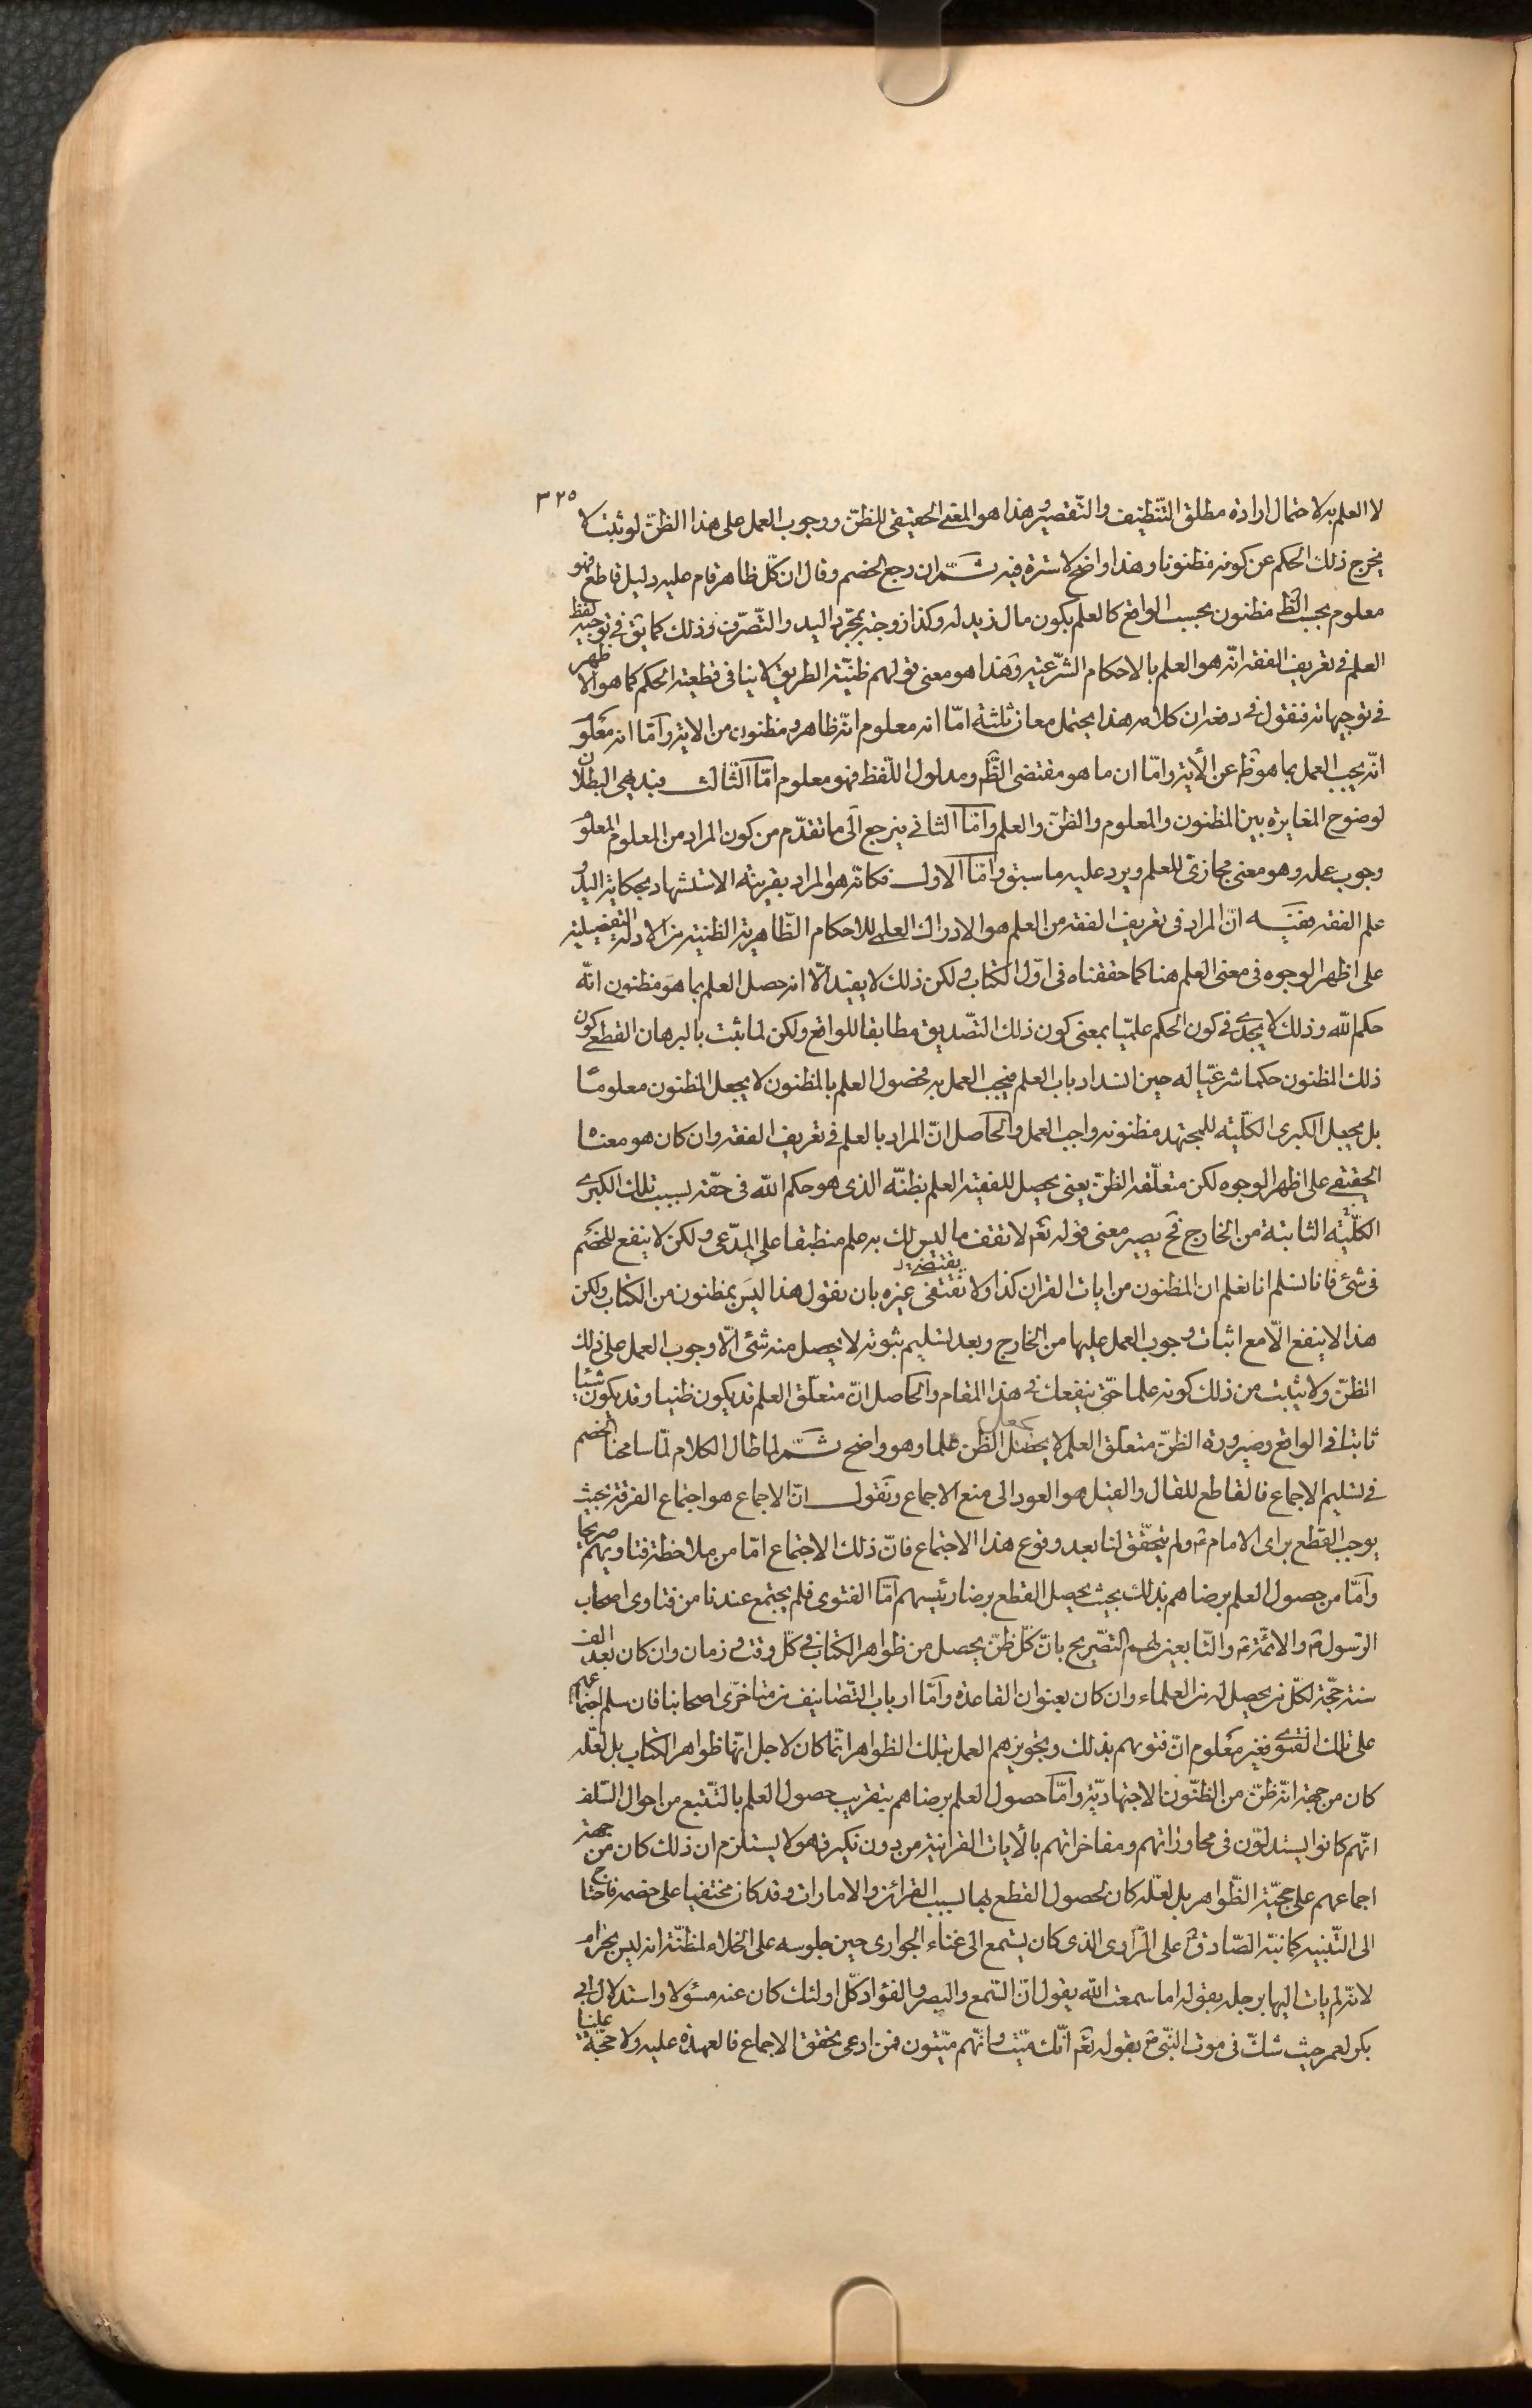 ٣٢٥
لا العلم به لاحتمال ارادة مطلق التنظيف والتقصير وهذا هو المعنى الحقيقى للظنّ ووجوب العمل على هذا الظنّ لو ثبت لا
يخرج ذلك الحكم عن كونه مظنونا وهذا واضح لا سترة فيه ثمّ ان رجع الخصم وقال ان كلّ ظاهر قام عليه دليل قاطع فهو
معلوم بحسب الظ مظنون بحسب الواقع كالعلم بكون مال زيد له وكذا زوجته بمجرّد اليد والتّصرّف وذلك كما يق فى توجيه لفظ
العلم فى تعريف الفقه انّه هو العلم بالاحكام الشّرعيّة وهذا هو معنى قولهم ظنيّة الطريق لا ينافى قطعية الحكم كما هو الاظهر
فى توجيهاته فنقول فى دفعه ان كلامه هذا يحتمل معان ثلثة امّا انه معلوم انّه ظاهر ومظنون من الاية وامّا انه معلوم
انّه يجب العمل بما هو ظ عن الأية وامّا ان ما هو مقتضى الظّ ومدلول اللّفظ فهو معلوم امّا الثالث فبديهى البطلان
لوضوح المغايرة بين المظنون والمعلوم والظنّ والعلم وامّا الثانى فيرجع الى ما تقدّم من كون المراد من المعلوم المعلوم
وجوب عمله وهو معنى مجازى للعلم ويرد عليه ما سبق وامّا الاول فكانّه هو المراد بقرينة الاستشهاد بحكاية اليد و
علم الفقه ففيه انّ المراد فى تعريف الفقه من العلم هو الادراك العلمى للاحكام الظّاهرية الظنية من الادلة التفصيلية
على اظهر الوجوه فى معنى العلم هنا كما حققناه فى اوّل الكتاب ولكن ذلك لا يفيد الّا انه حصل العلم بما هو مظنون انّه
حكم اللّه وذلك لا يجدى فى كون الحكم علميّا بمعنى كون ذلك التّصديق مطابقا للواقع ولكن لما ثبت بالبرهان القطعى كون
ذلك المظنون حكما شرعيّا له حين انسداد باب العلم فيجب العمل به فحصول العلم بالمظنون لا يجعل المظنون معلومًا
بل يجعل الكبرى الكلّية للمجتهد مظنونه واجب العمل والحاصل انّ المراد بالعلم فى تعريف الفقه وان كان هو معناه
الحقيقى على اظهر الوجوه لكن متعلّقه الظنّ يعنى يحصل للفقيه العلم بظنّه الذى هو حكم اللّه فى حقّه بسبب تلك الكبرى
الكلّيّة الثابتة من الخارج فح يصير معنى قوله تع لا تقف ما ليس لك به علم منطبقا على المدّعى ولكن لا ينفع للخصم
فى شئ فانا نسلم انا نعلم ان المظنون من ايات القران كذا ولا نقتفى غيره بان نقول هذا ليس بمظنون من الكتاب ولكن
هذا لا ينفع الّا مع اثبات وجوب العمل عليها من الخارج وبعد تسليم ثبوته لا يحصل منه شئ الّا وجوب العمل على ذلك
الظنّ ولا يثبت من ذلك كونه علما حتّى ينفعك فى هذا المقام والحاصل انّ متعلّق العلم قد يكون ظنيا وقد يكون شيئا
ثابتا فى الواقع وصيرورة الظنّ متعلّق العلم لا يجعل الظن علما وهو واضح ثمّ لما طال الكلام لمّا سامحنا الخصم
فى تسليم الاجماع فالقاطع للقال والقيل هو العود الى منع الاجماع ونقول انّ الاجماع هو اجتماع الفرقة بحيث
يوجب القطع براى الامام ع ولم يتحقّق لنا بعد وقوع هذا الاجتماع فانّ ذلك الاجتماع امّا من ملاحظة فتاويهم صريحا
وامّا من حصول العلم برضاهم بذلك بحيث يحصل القطع برضا رئيسهم امّا الفتوى فلم يجتمع عندنا من فتاوى اصحاب
الرّسول ص والائمّة ع والتّابعين لهم التصّريح بانّ كلّ ظنّ يحصل من ظواهر الكتاب فى كلّ وقت وزمان وان كان بعد الف
سنة حجّة لكلّ من يحصل له من العلماء وان كان بعنوان القاعدة وامّا ارباب التّصانيف من متاخرّى اصحابنا فان سلم اجتماعهم
على تلك الفتوى فغير معلوم انّ فتويهم بذلك وتجويزهم العمل بتلك الظواهر انّما كان لاجل انّها ظواهر الكتاب بل لعلّه
كان من جهة انّه ظنّ من الظنّون الاجتهاديّة وامّا حصول العلم برضاهم بتقريب حصول العلم بالتّتبع من احوال السّلف
انّهم كانوا يستدلّون فى محاوراتهم ومفاخراتهم بالأيات القرانية من دون نكير فهو لا يستلزم ان ذلك كان من جهة
اجماعهم على حجيّة الظّواهر بل لعلّه كان لحصول القطع بها بسبب القرائن والامارات وقد كان مختفيا على خصمه فاحتاج
الى التّنبيه كما نبّه الصّادق ع على الرّاوى الذى كان يستمع الى غناء الجوارى حين جلوسه على الخلاء لمظنّة انه ليس بحرام
لانّه لم يات اليها برجله بقوله اما سمعت اللّه يقول انّ السّمع والبصر والفؤاد كلّ اولئك كان عنه مسئولا واستدلال ابى
بكر لعمر حيث شكّ فى موت النّبى ص بقوله تع انّك ميّت وانّهم ميّتون فمن ادعى تحقق الاجماع فالعهدة عليه ولا حجّة علينا